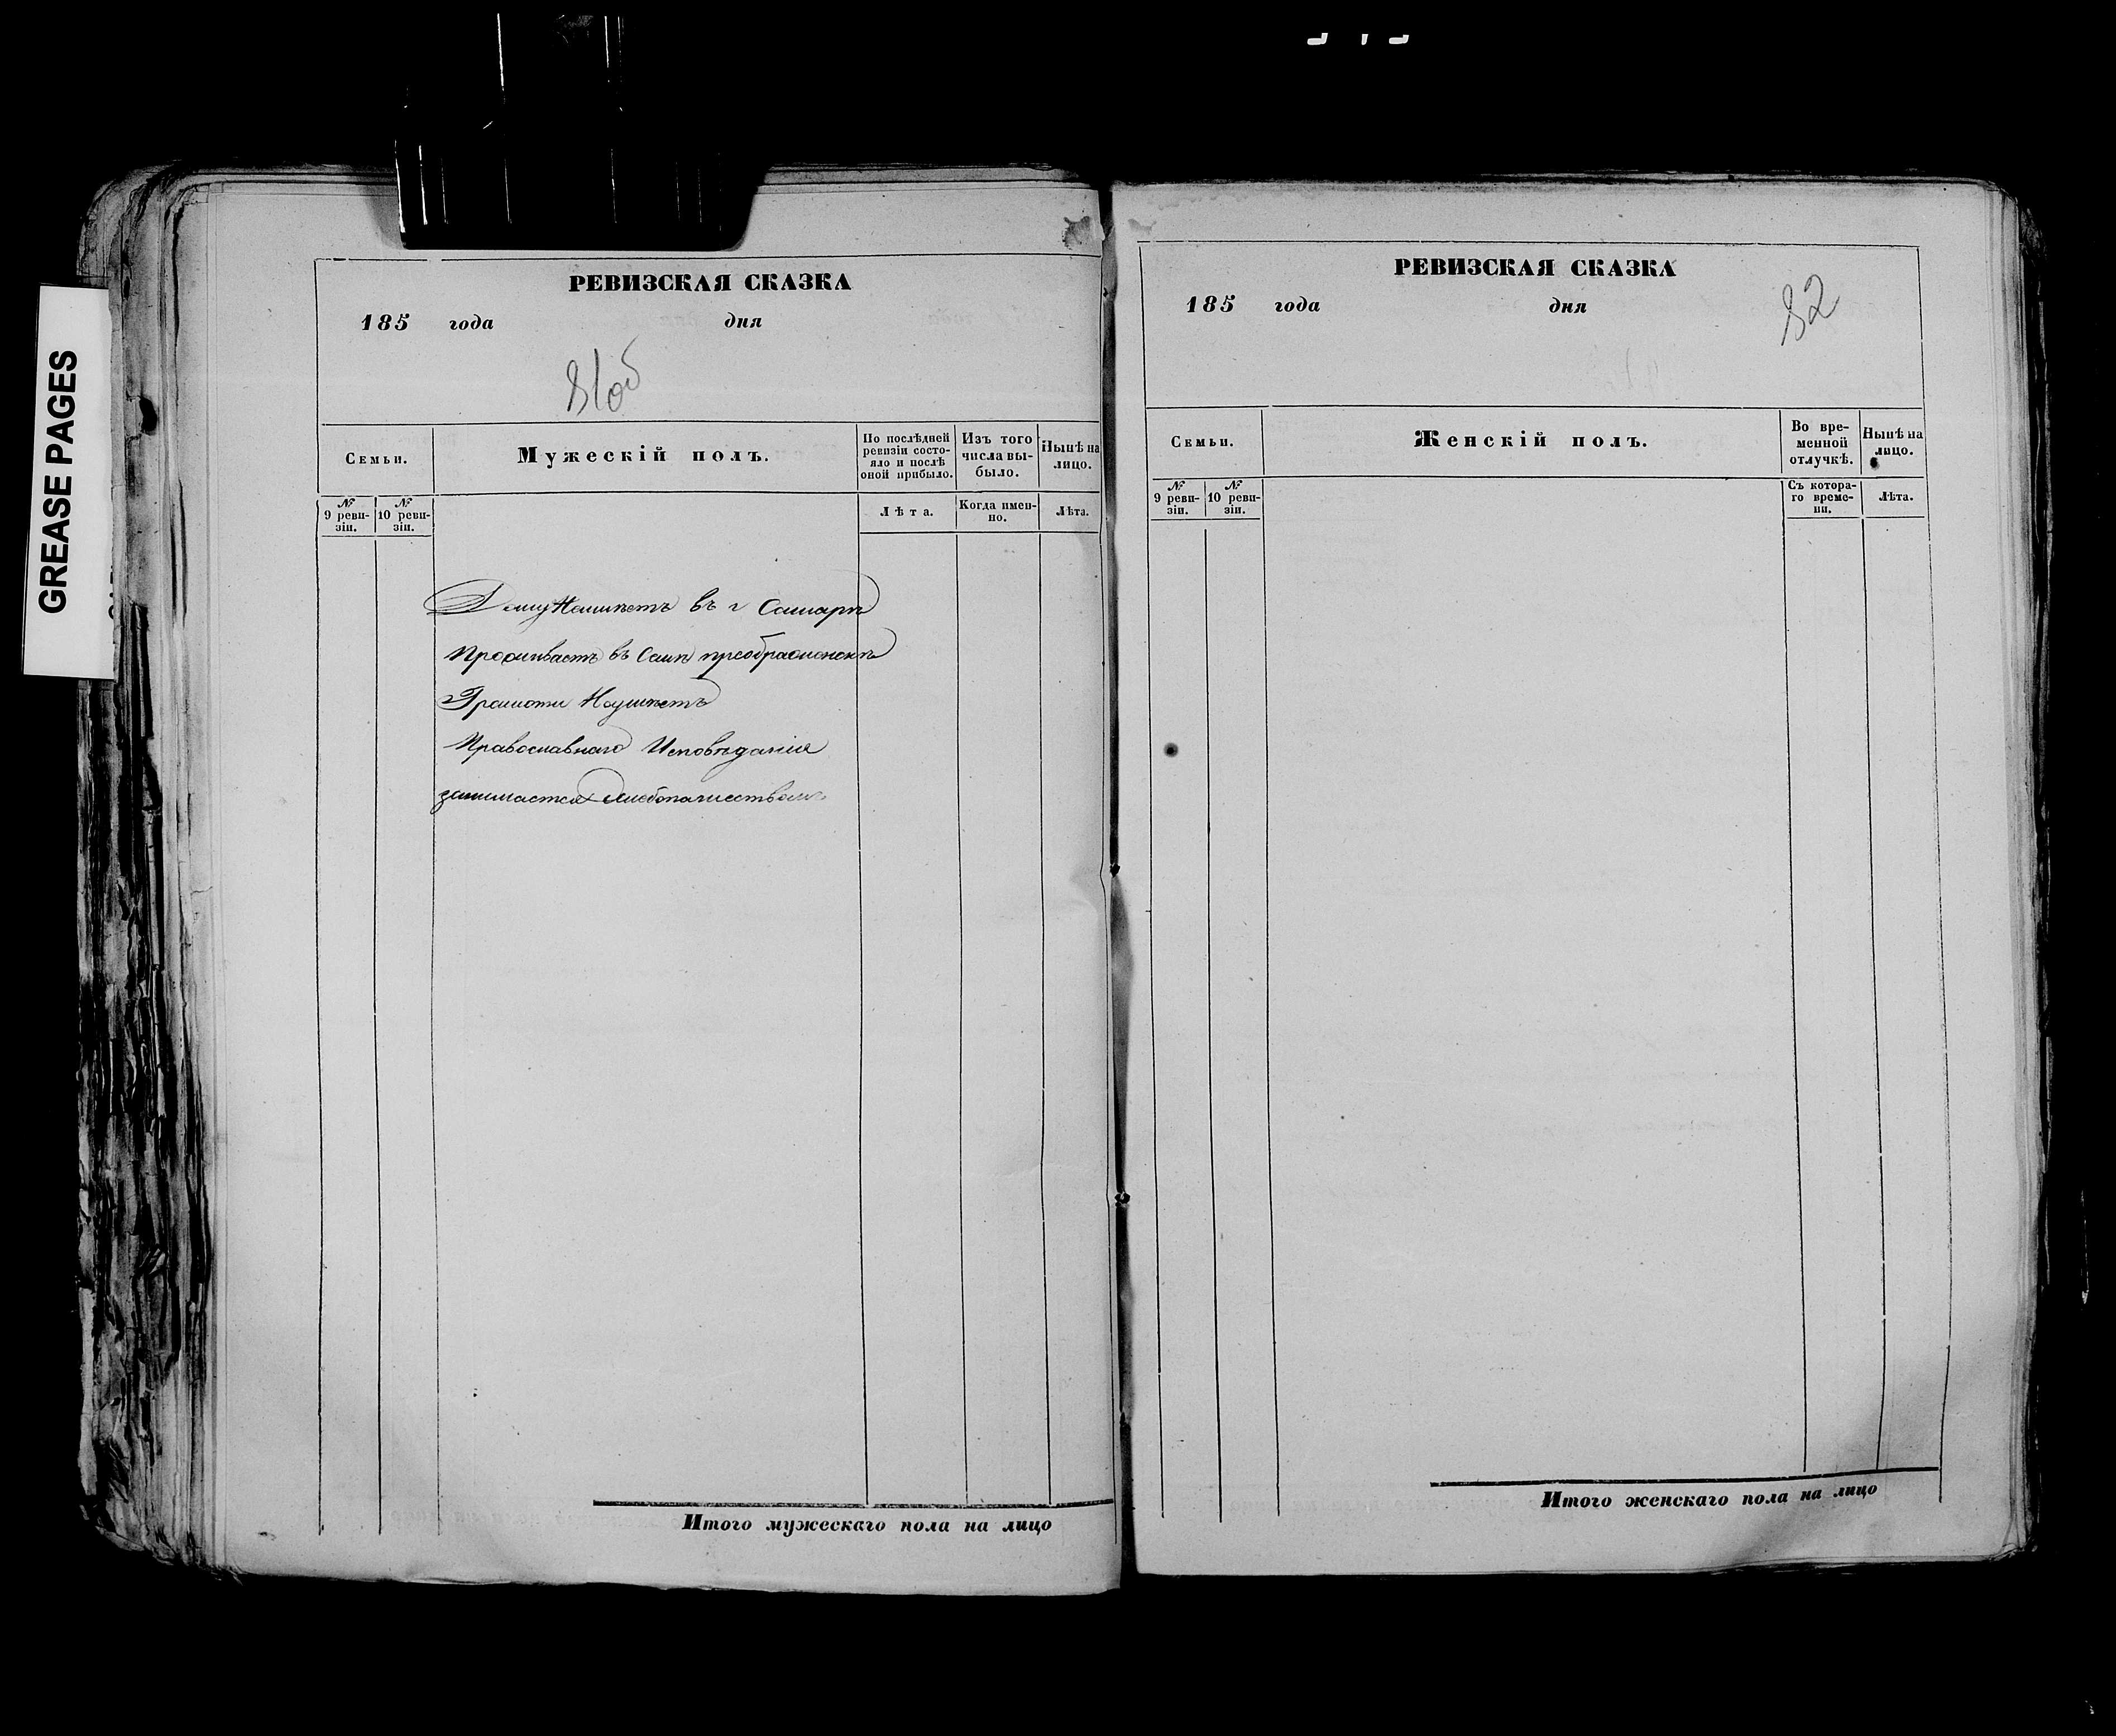 GREASE PAGES
РЕВИЗСКАЯ СКАЗКА
185 года дня
81об
Семьи.
Мужескій полъ.
По послѣдней
ревизіи состо-
яло и послѣ
оной прибыло.
Изъ того
числа вы-
было.
Нынѣ на
лицо.
№
9 реви-
зіи.
№
10 реви-
зіи.
Лѣта.
Когда имен-
но.
Лѣта.
Дому Неимѣетъ въ г Самарѣ
Проживаетъ въ Селѣ преображенскѣ
Грамоти Неумѣетъ
Православнаго Исповѣданія
занимается хлебопашествомъ
Итого мужескаго пола на лицо
РЕВИЗСКАЯ СКАЗКА
185 года дня
82
Семьи.
Женскій полъ.
Во вре-
менной
отлучкѣ.
Нынѣ на
лицо.
№
9 реви-
зіи.
№
10 реви-
зіи.
Съ котора-
го време-
ни.
Лѣта.
Итого женскаго пола на лицо